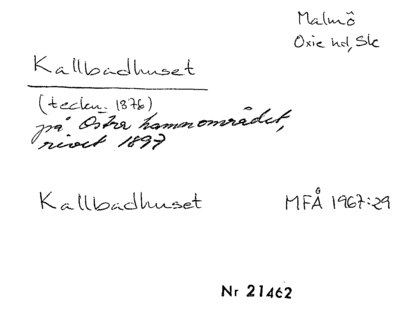 Malmö
Oxie hd, Sk
Kallbadhuset
(teckn. 1876)
på Östra hamnområdet,
rivet 1897
Kallbadhuset MFÅ 1967:29
Nr 21462